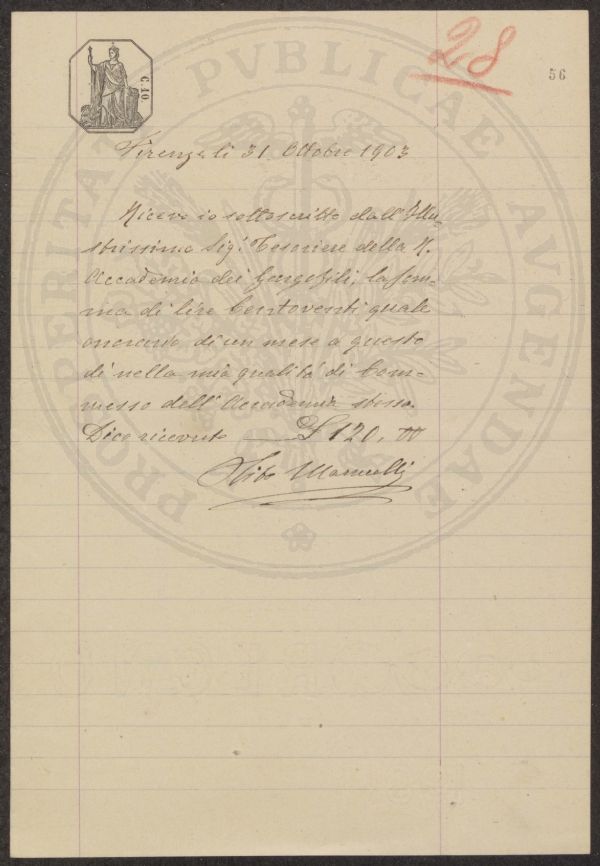 28
56
C. 10
PROSPERITATI PVBLICAE AVGENDAE
Firenze li 31 Ottobre 1903
Ricevo io sottoscritto dall'Illu-
strissimo Sigr. Tesoriere della R.
Accademia dei Georgofili, la som-
ma di lire Centoventi quale
onorario di un mese a questo
dì nella mia qualità di Com-
messo dell'Accademia stessa.
Dico ricevute — £ 120, 00